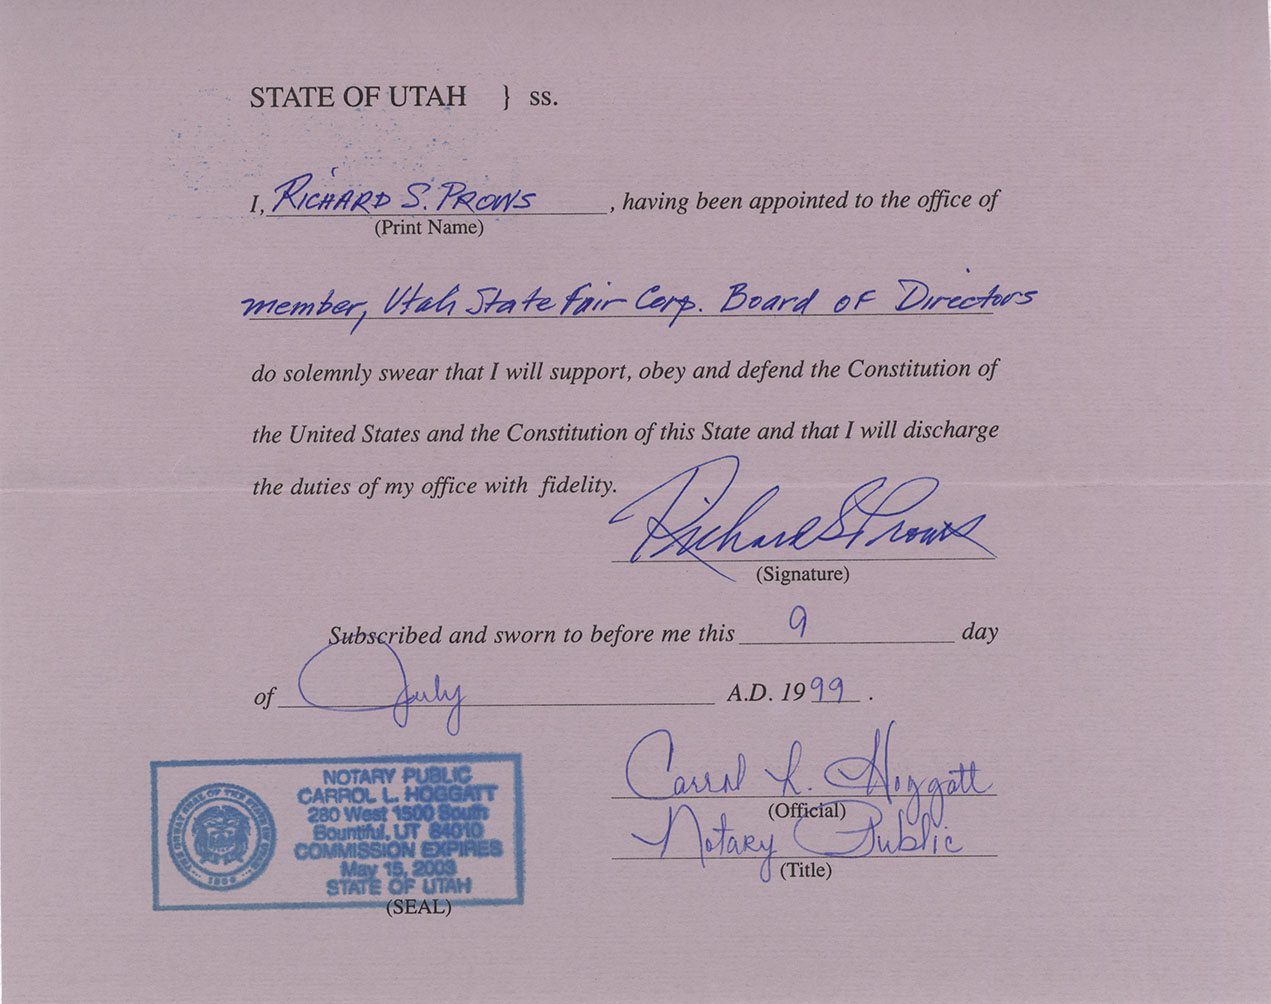 STATE OF UTAH } ss.
I, RICHARD S. PROWS, having been appointed to the office of
(Print Name)
member, Utah State Fair Corp. Board of Directors
do solemnly swear that I will support, obey and defend the Constitution of
the United States and the Constitution of this State and that I will discharge
the duties of my office with fidelity.
Richard S Prows
(Signature)
Subscribed and sworn to before me this 9 day
of July A.D. 1999.
Carrol L. Hoggatt
(Official)
Notary Public
(Title)
NOTARY PUBLIC
CARROL L. HOGGATT
280 West 1500 South
Bountiful, UT 84010
COMMISSION EXPIRES
May 15, 2003
STATE OF UTAH
THE GREAT SEAL OF THE STATE OF UTAH
1896
(SEAL)